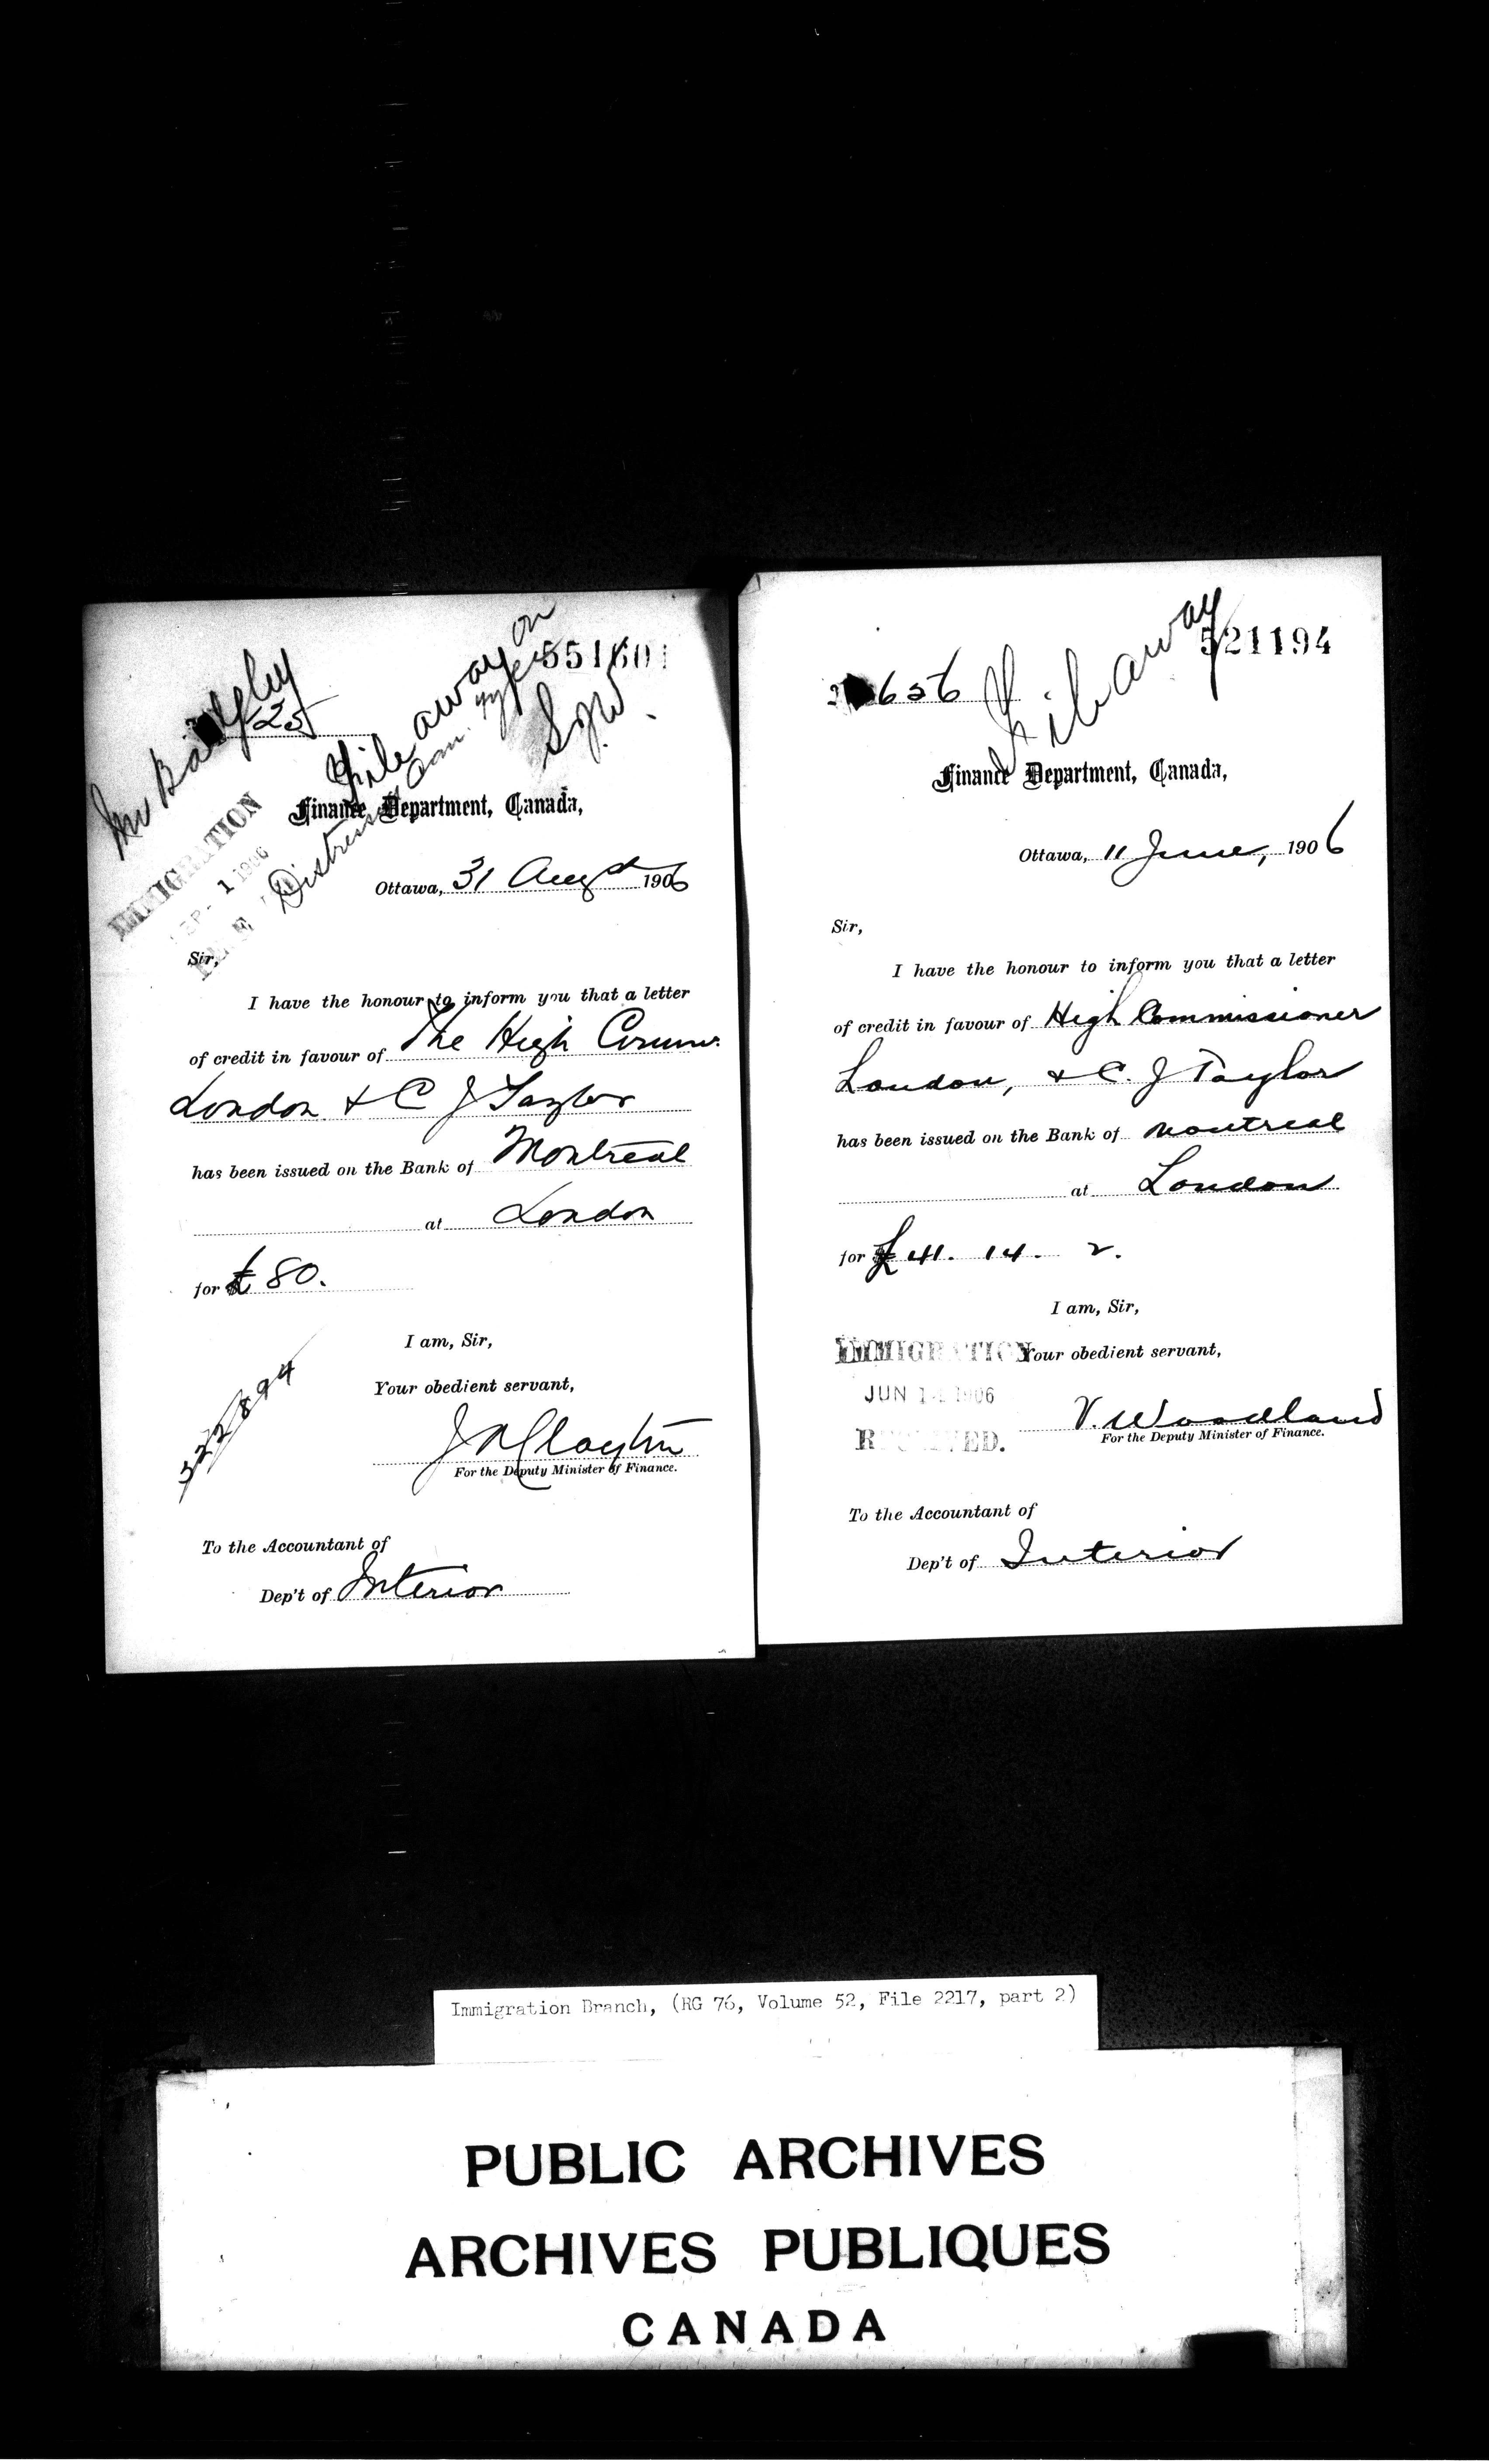 Mr Badgley
25
File away on
Distressed Can.
551601
IMMIGRATION
SEP - 1 1906
Finance Department, Canada,
Ottawa, 31 Augst 1906
Sir,
I have the honour to inform you that a letter
of credit in favour of The High Commr.
London & C J Taylor
has been issued on the Bank of Montreal
at London
for £ 80.
I am, Sir,
Your obedient servant,
322894
For the Deputy Minister of Finance.
To the Accountant of
Dep't of Interior
File away
521194
656
Finance Department, Canada,
Ottawa, 11 June, 1906
Sir,
I have the honour to inform you that a letter
of credit in favour of High Commissioner
London, & C. J Taylor
has been issued on the Bank of Montreal
at London
for £ 41. 14. 2.
I am, Sir,
IMMIGRATION
Your obedient servant,
JUN 1906
RECEIVED.
V. Woodland
For the Deputy Minister of Finance.
To the Accountant of
Dep't of Interior
Immigration Branch, (RG 76, Volume 52, File 2217, part 2)
PUBLIC ARCHIVES
ARCHIVES PUBLIQUES
CANADA